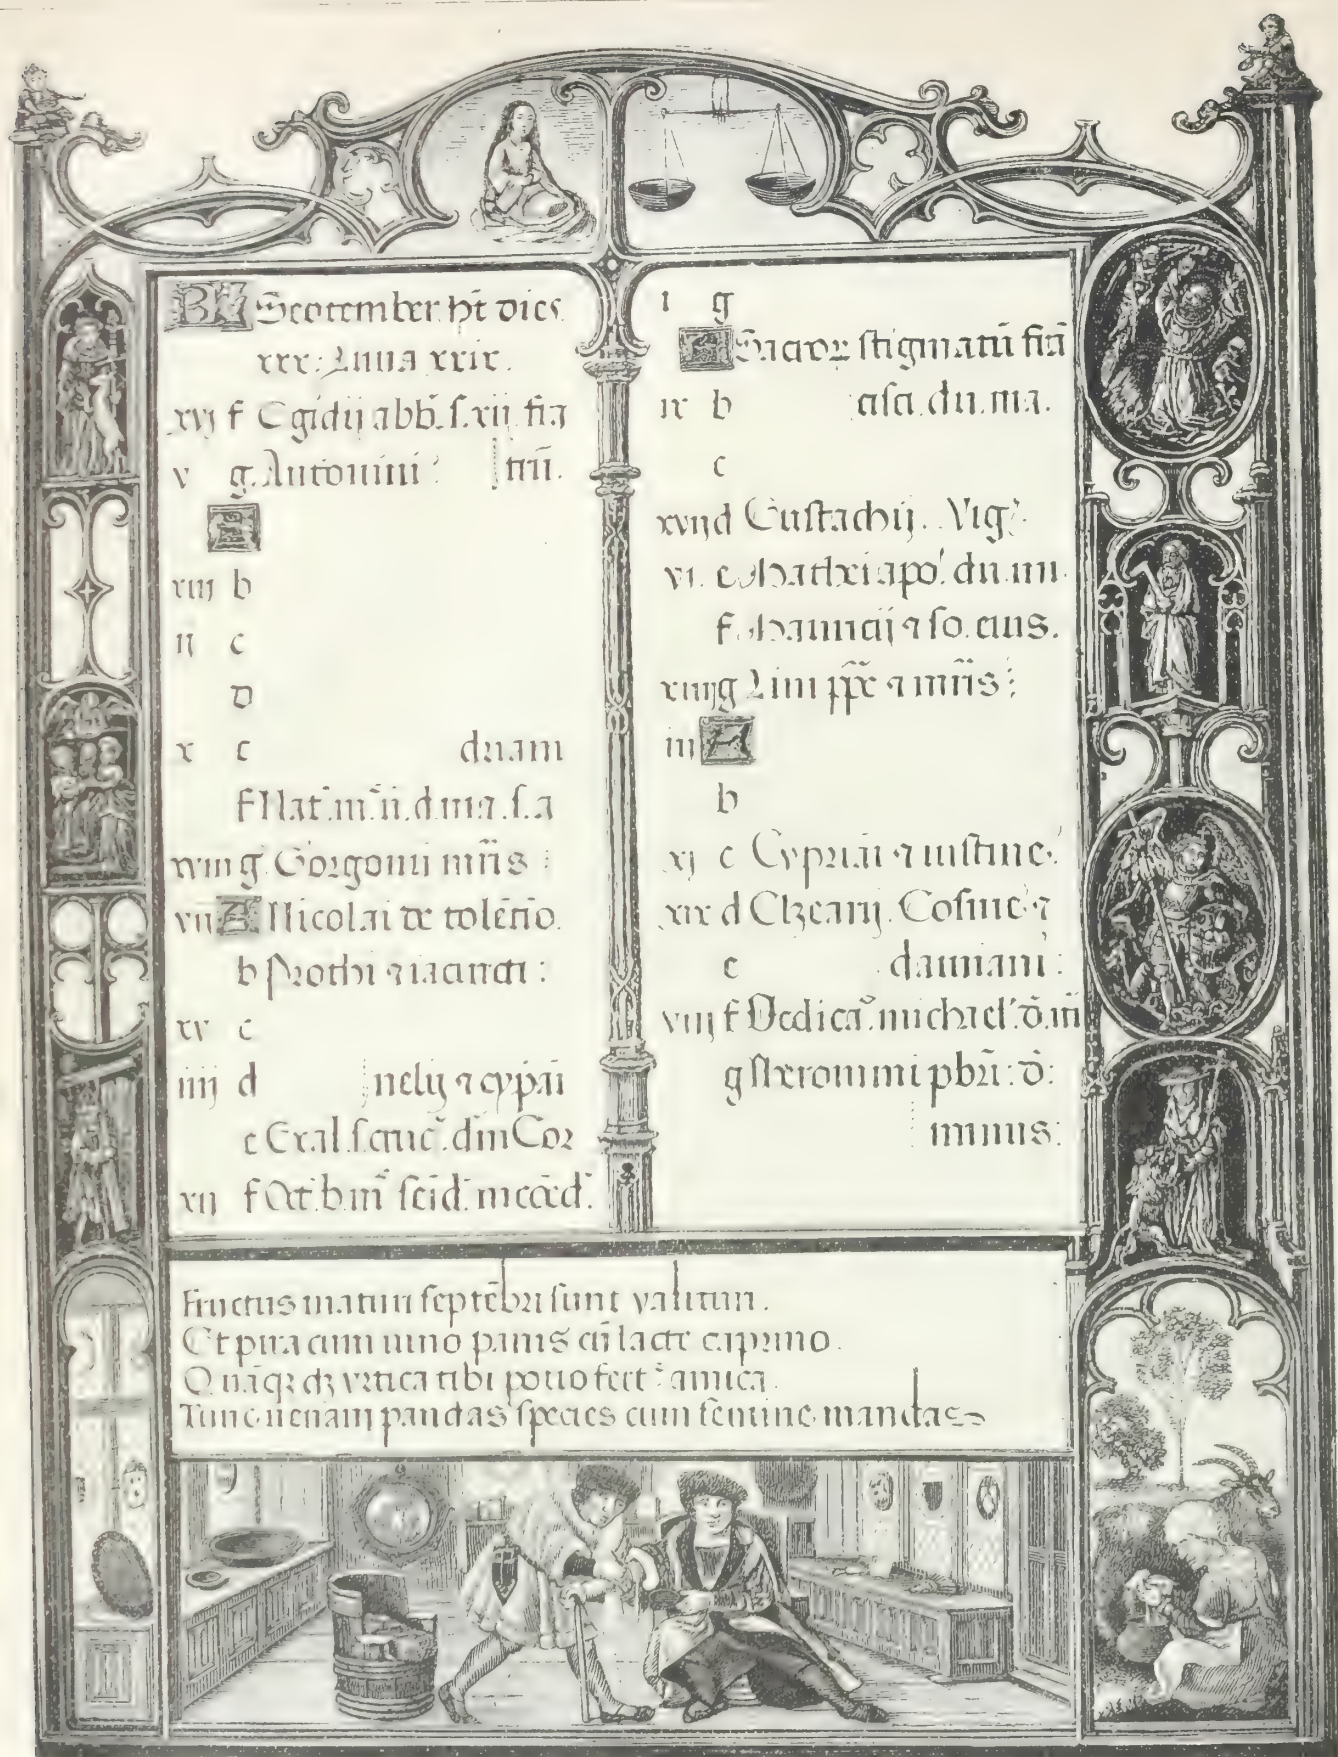 KL September ht dies
xxx. Luna xxix.
xvj f Egidij abb. f. xii. fra
v g. Antonini trū.
A
xiij b
ij c
d
x e duam
f Nat. m. v. d. ma. f. a
xviij g Gorgonij mr̄is
vij A Nicolai de tolētīo.
b Prothi ⁊ iacincti :
xv c
iiij d nelij ⁊ cypāi
e Exal. s. cruc. dm̄ Cor
xij f Oct. b. m̄
i g
A Sacroꝝ stigmatū frā
ix b cisci. du. ma.
c
xvij d Eustachij. Vig.
vi. e Mathei apo. du. mi.
f Mauricij ⁊ so. eius.
xiiij g Lini pp̄e ⁊ mr̄is :
iij A
b
xj c Cypriāi ⁊ iustine.
xix d Elzearij. Cosme ⁊
e damiani :
viij f Dedicā. michael. d̄. m̄
g Iheronimi pbr̄i : d̄ :
minus :
Fructus maturi septēbri sunt valituri.
Et pira cum uino panis cū lacte caprino.
tibi potio fert amica.
Tunc uenam pandas species cum semine mandas